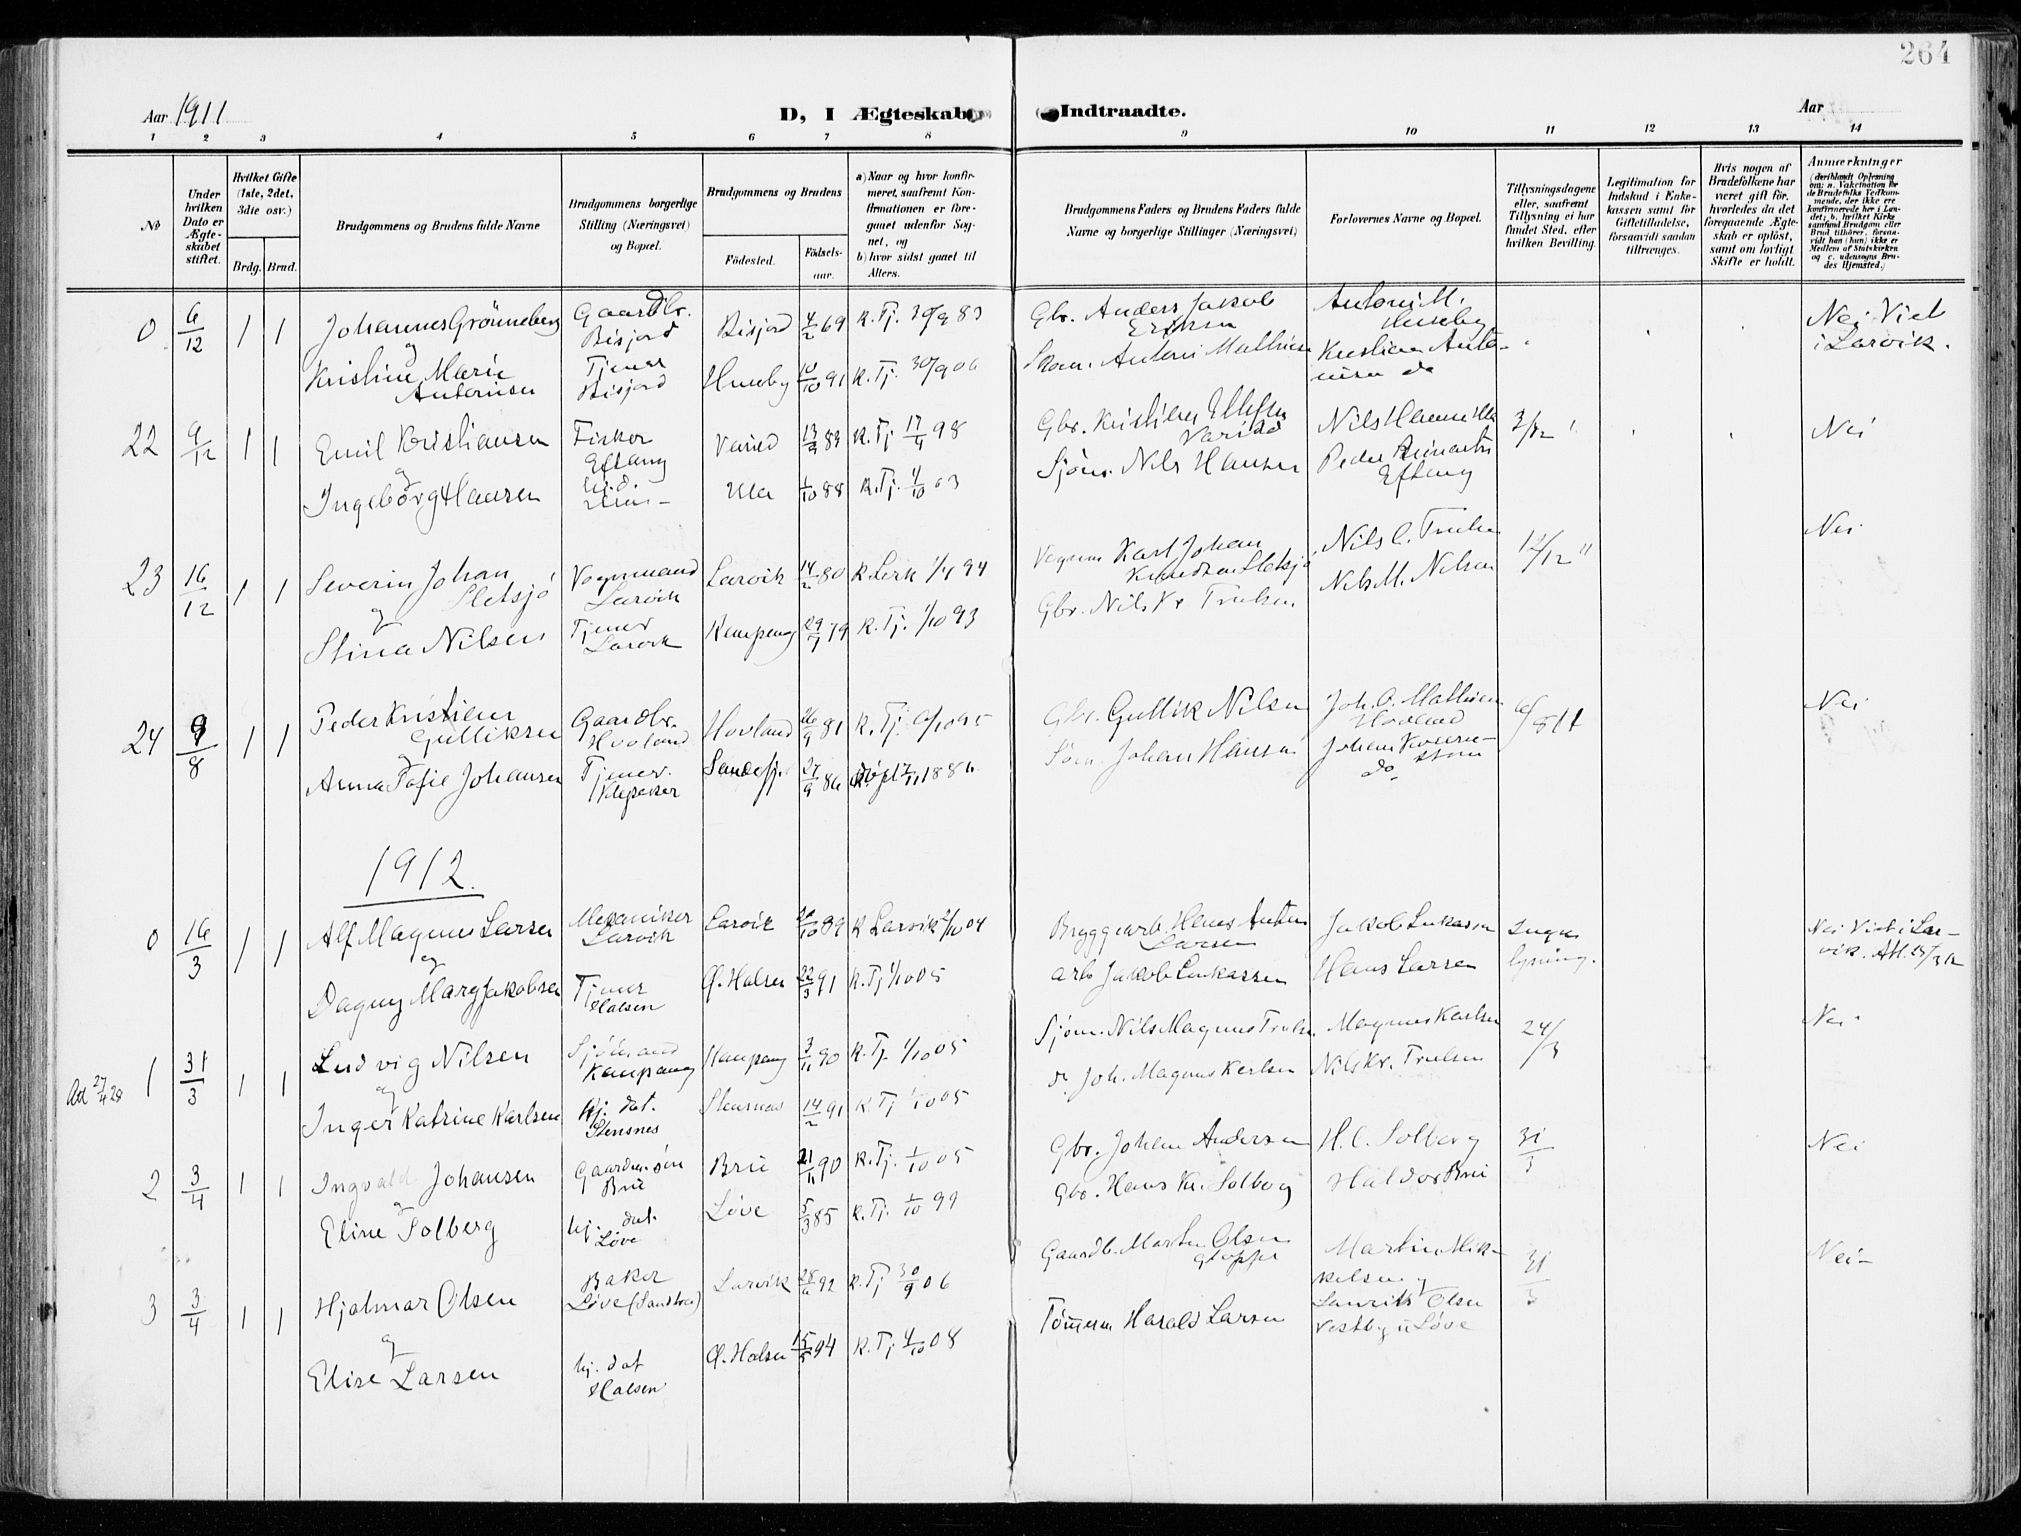 264
Aar 1911
D, I Ægteskab Indtraadte.
Aar
1 2 3 4 5 6 7 8 9 10 11 12 13 14
No
Under hvilken Dato er Ægteskabet stiftet.
Hvilket Gifte (1ste, 2det, 3die osv.)
Brdg. Brud.
Brudgommens og Brudens fulde Navne
Brudgommens borgerlige Stilling (Næringsvei) og Bopæl.
Brudgommens og Brudens
Fødested.
Fødselsaar.
a) Naar og hvor konfirmeret, saafremt Konfirmationen er foregaaet udenfor Sognet, og
b) hvor sidst gaaet til Alters.
Brudgommens Faders og Brudens Faders fulde Navne og borgerlige Stillinger (Næringsvei)
Forlovernes Navne og Bopæl.
Tillysningsdagene eller, saafremt Tillysning ei har fundet Sted, efter hvilken Bevilling.
Legitimation for Indskud i Enkekassen samt for Giftetilladelse, forsaavidt saadan tiltrænges.
Hvis nogen af Brudefolkene har været gift før, hvorledes da det foregaaende Ægteskab er opløst, samt om lovligt Skifte er holdt.
Anmærkninger (deriblandt Oplysning om: a. Vakcination for de Brudefolks Vedkommende, der ikke ere konfirmerede her i Landet; b. hvilket Kirkesamfund Brudgom eller Brud tilhører, forsaavidt han (hun) ikke er Medlem af Statskirken og c. udensogns Brudes Hjemsted.)
0 6/12 1 1 Johannes Grönneberg Gaardbr. Bisjord Bisjord 4/2 69 K. Tj. 30/9 83 Gbr. Anders Jakob Antoni M. Huseby Nei Viet i Larvik.
og
Kristine Marie Antonisen Tjener Bisjord Huseby 10/10 91 K. Tj. 30/9 06 Antoni Mathisen Kristian Antonisen do
22 9/12 1 1 Emil Kristiansen Fisker Eftang 13/9 83 K. Tj. 17/4 98 Gbr. Kristian Ellefsen Nils 3/12 Nei
og
Ingeborg Hansen Ula 1/10 88 K. Tj. 4/10 03 Sjöm. Nils Hansen Peder Eftang
23 16/12 1 1 Severin Johan Sletsjö Vognmand Larvik Larvik 14/2 80 K. Lrk 1/4 94 Karl Johan Knudsen Sletsjö Nils C. Trulsen 12/12 " Nei
og
Stina Nilsen Tjener Larvik Kaupang 29/7 79 K. Tj. 1/10 93 Gbr. Nils Kr Trulsen Nils M. Nilsen
24 9/8 1 1 Peder Kristian Gulliksen Gaardbr. Hovland Hovland 26/9 81 K. Tj. 6/10 95 Gbr. Gullik Nilsen Joh. O. Mathisen Hovland 6/8 11 Nei
og
Anna Sofie Johansen Tjener. Klepaker Sandefj. 27/9 86 Johan Hansen Johan do
1912
0 16/3 1 1 Alf Magnus Larsen Mekaniker Larvik Larvik 20/10 89 K Larvik 2/10 04 Bryggearb. Hans Anton Larsen Jakob Lukassen Ingen lysning. Nei Viet i Larvik. Att. 15/3 12
og
Dagny Marg Jakobsen Tjener Halsen Ø. Halsen 22/3 91 K. Tj 1/10 05 arb Jakob Lukassen Hans Larsen
Att 27/4 28 1 31/3 1 1 Ludvig Nilsen Sjömand Kaupang Kaupang 3/11 90 K. Tj. 1/10 05 Sjöm. Nils Magnus Trulsen Magnus Karlsen 24/3 Nei
og
Inger Katrine Karlsen hj. dat. Stensnes Stensnes 14/2 91 K. Tj 1/10 05 do Joh. Magnus Karlsen Nils Kr. Trulsen
2 3/4 1 1 Ingvald Johansen Gaardm. sön Brii Brii 21/11 90 K. Tj. 1/10 05 Gbr. Johan Andersen H. C. Solberg 31/3 Nei
og
Eline Solberg hj. dat. Løve Løve 5/3 85 K. Tj. 1/10 99 Gbr. Hans Kr. Solberg Haldor Brii
3 3/4 1 1 Hjalmar Olsen Baker Løve (Sandtra) Larvik 28/6 92 K. Tj 30/9 06 Gaardb. Martin Olsen Gloppe Martin Mikkelsen og 31/3 Nei
og
Elise Larsen hj. dat Halsen Ø. Halsen 15/5 94 K. Tj 4/10 08 Tömerm Harald Larsen Laurits Olsen Vestby i Løve